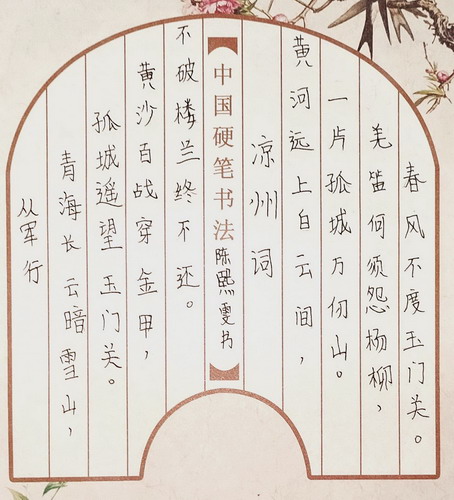 从军行
青海长云暗雪山，
孤城遥望玉门关。
黄沙百战穿金甲，
不破楼兰终不还。
中国硬笔书法
陈熙雯书
凉州词
黄河远上白云间，
一片孤城万仞山。
羌笛何须怨杨柳，
春风不度玉门关。